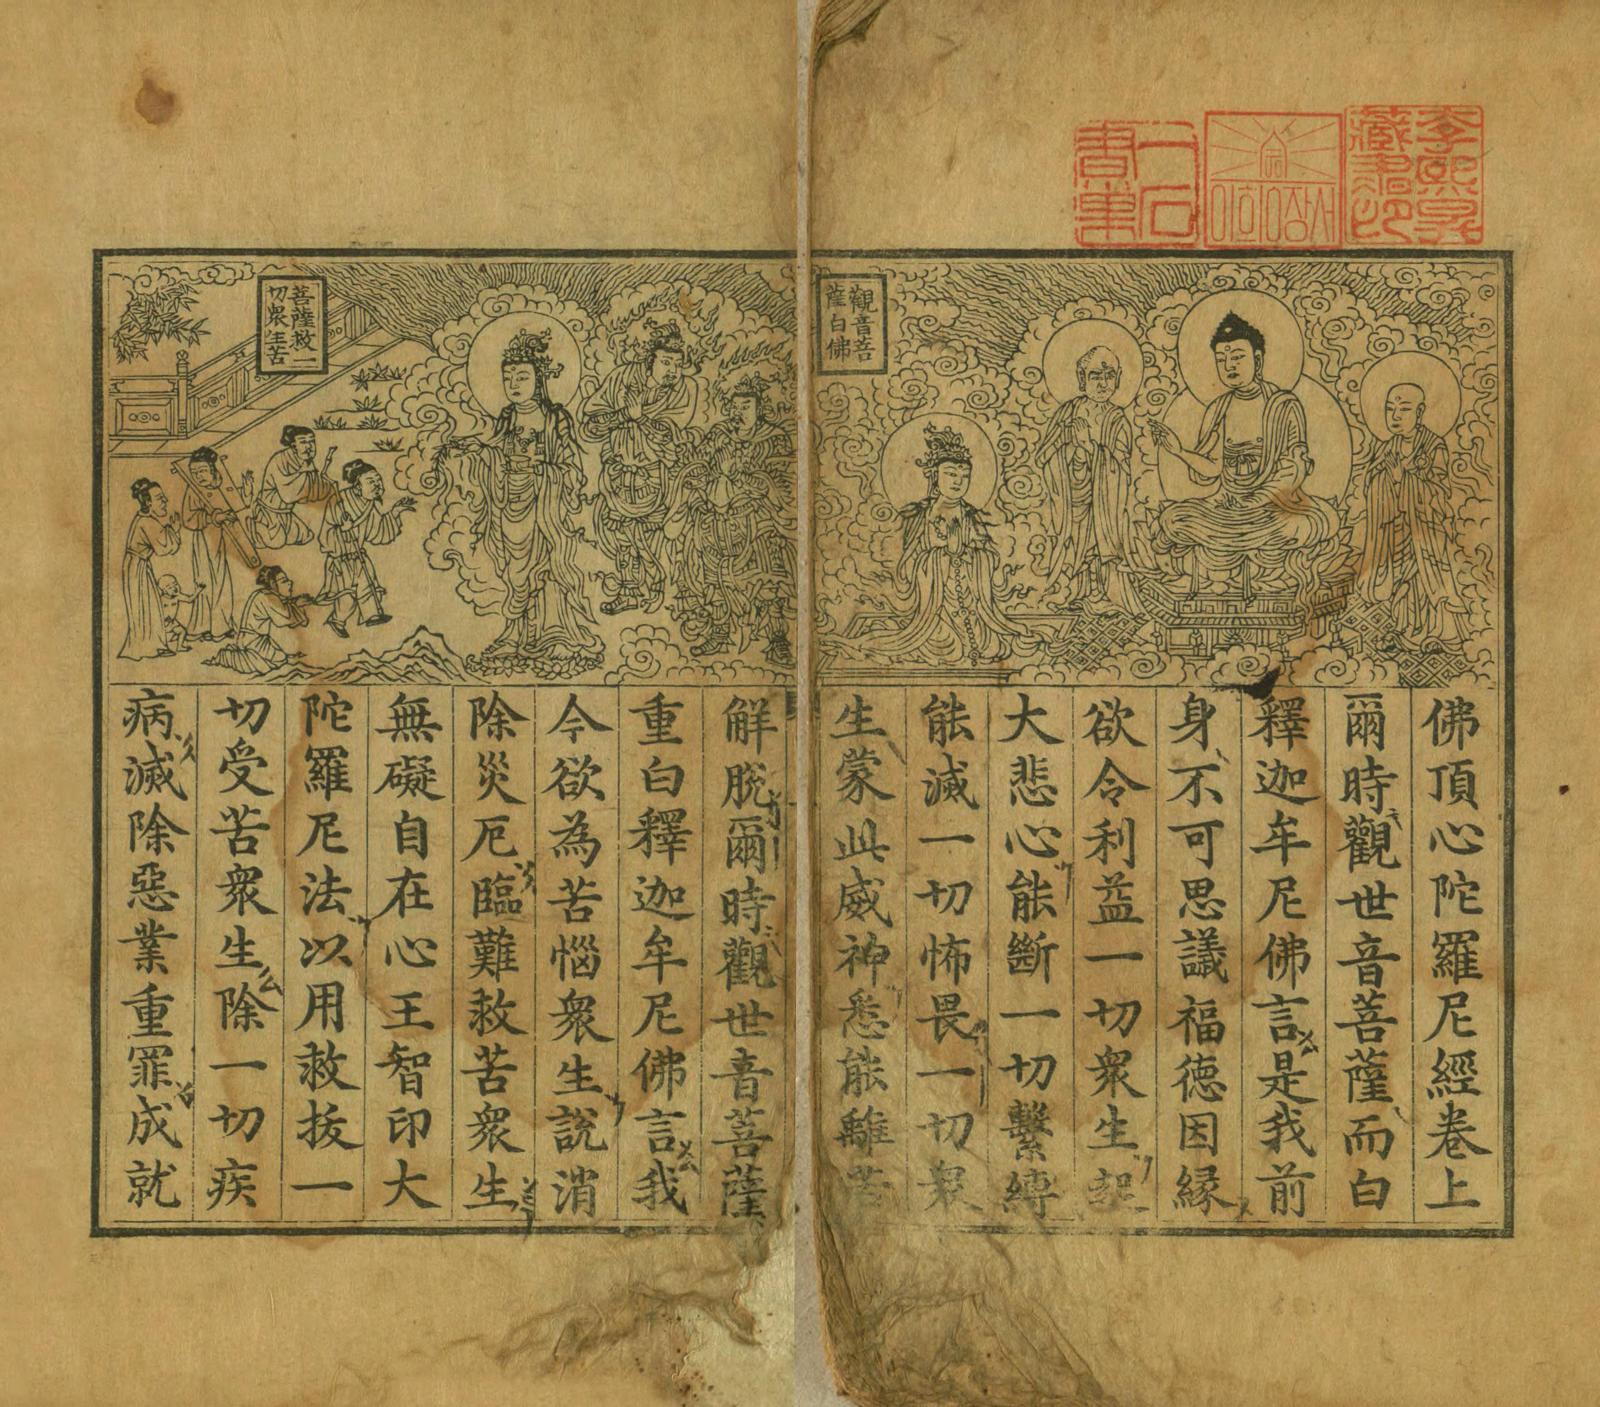 李熙昇
藏書印
이희승장서
一石
書庫
觀音菩
薩白佛
菩薩救一
切眾生苦
佛頂心陀羅尼經卷上
爾時觀世音菩薩而白
釋迦牟尼佛言是我前
身不可思議福德因緣
欲令利益一切衆生起
大悲心能斷一切繫縛
能滅一切怖畏一切衆
生蒙此威神悉能離苦
解脫爾時觀世音菩薩
重白釋迦牟尼佛言我
今欲為苦惱衆生說消
除災厄臨難救苦衆生
無礙自在心王智印大
陀羅尼法以用救拔一
切受苦衆生除一切疾
病滅除惡業重罪成就